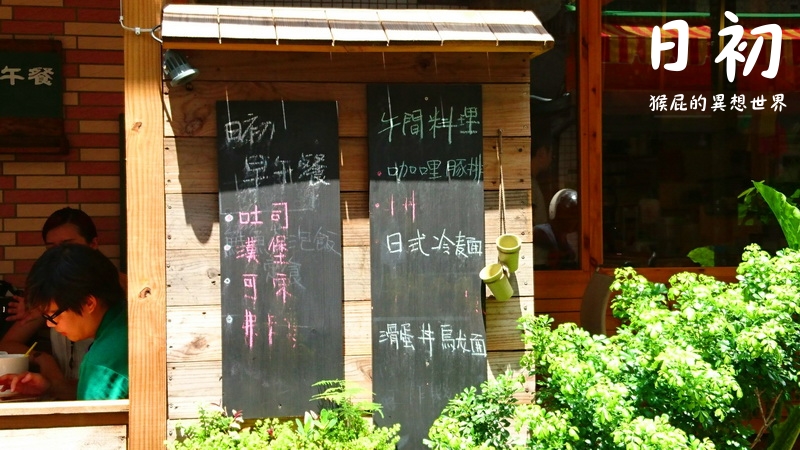 午餐
日初
早午餐
吐司
漢堡
可
泡飯
食
午間料理
咖哩豚排
日式冷麵
滑蛋丼烏龙面
日初
猴屁的異想世界